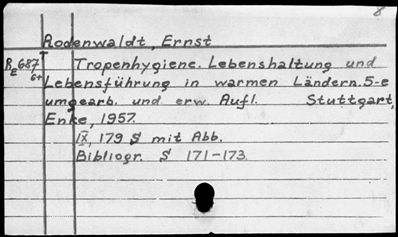 8
Rodenwaldt, Ernst
R 687 Tropenhygiene. Lebenshaltung und
E 6+ Lebensführung in warmen Ländern. 5-e
umgearb. und erw. Aufl. Stuttgart,
Enke, 1957.
IX, 179 S mit Abb.
Bibliogr. S 171-173.